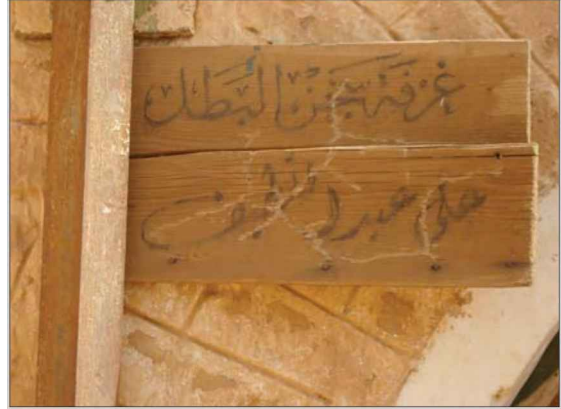 غرفة سجن البطل
علي عبد اللطيف